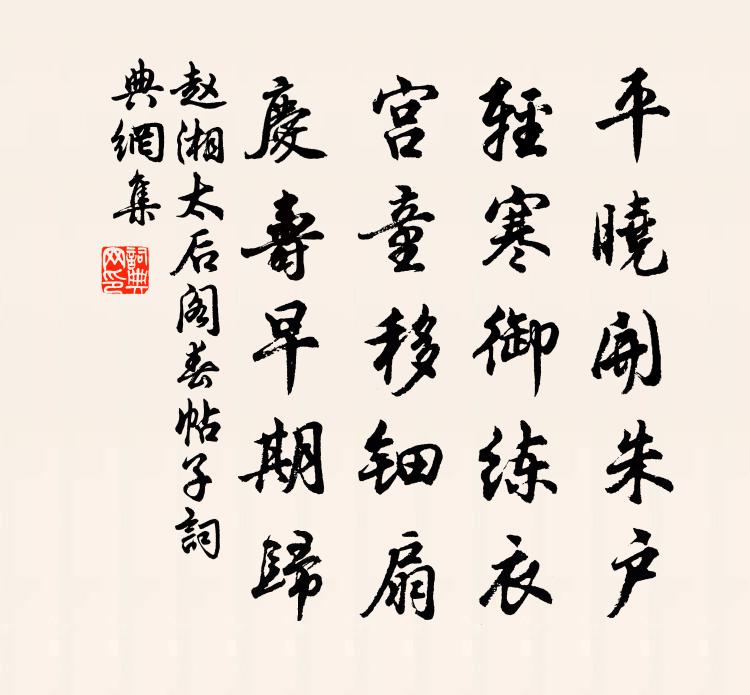 平曉開朱户
輕寒御练衣
宫童移钿扇
慶壽早期歸
赵湘太后阁春帖子詞
典網集
詞典網印